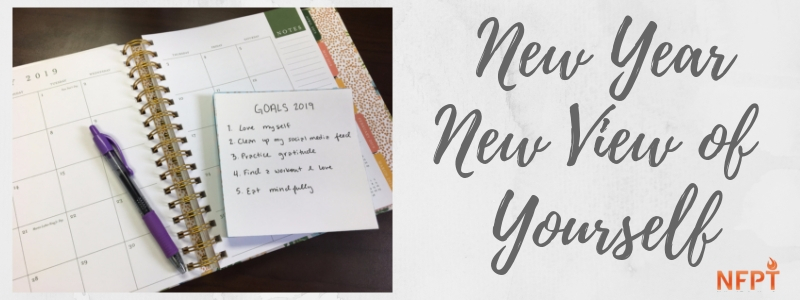 Y 2019
NOTES
GOALS 2019
1. Love myself
2. Clean up my social media feed
3. Practice gratitude
4. Find a workout I love
5. Eat mindfully
New Year
New View of
Yourself
NFPT